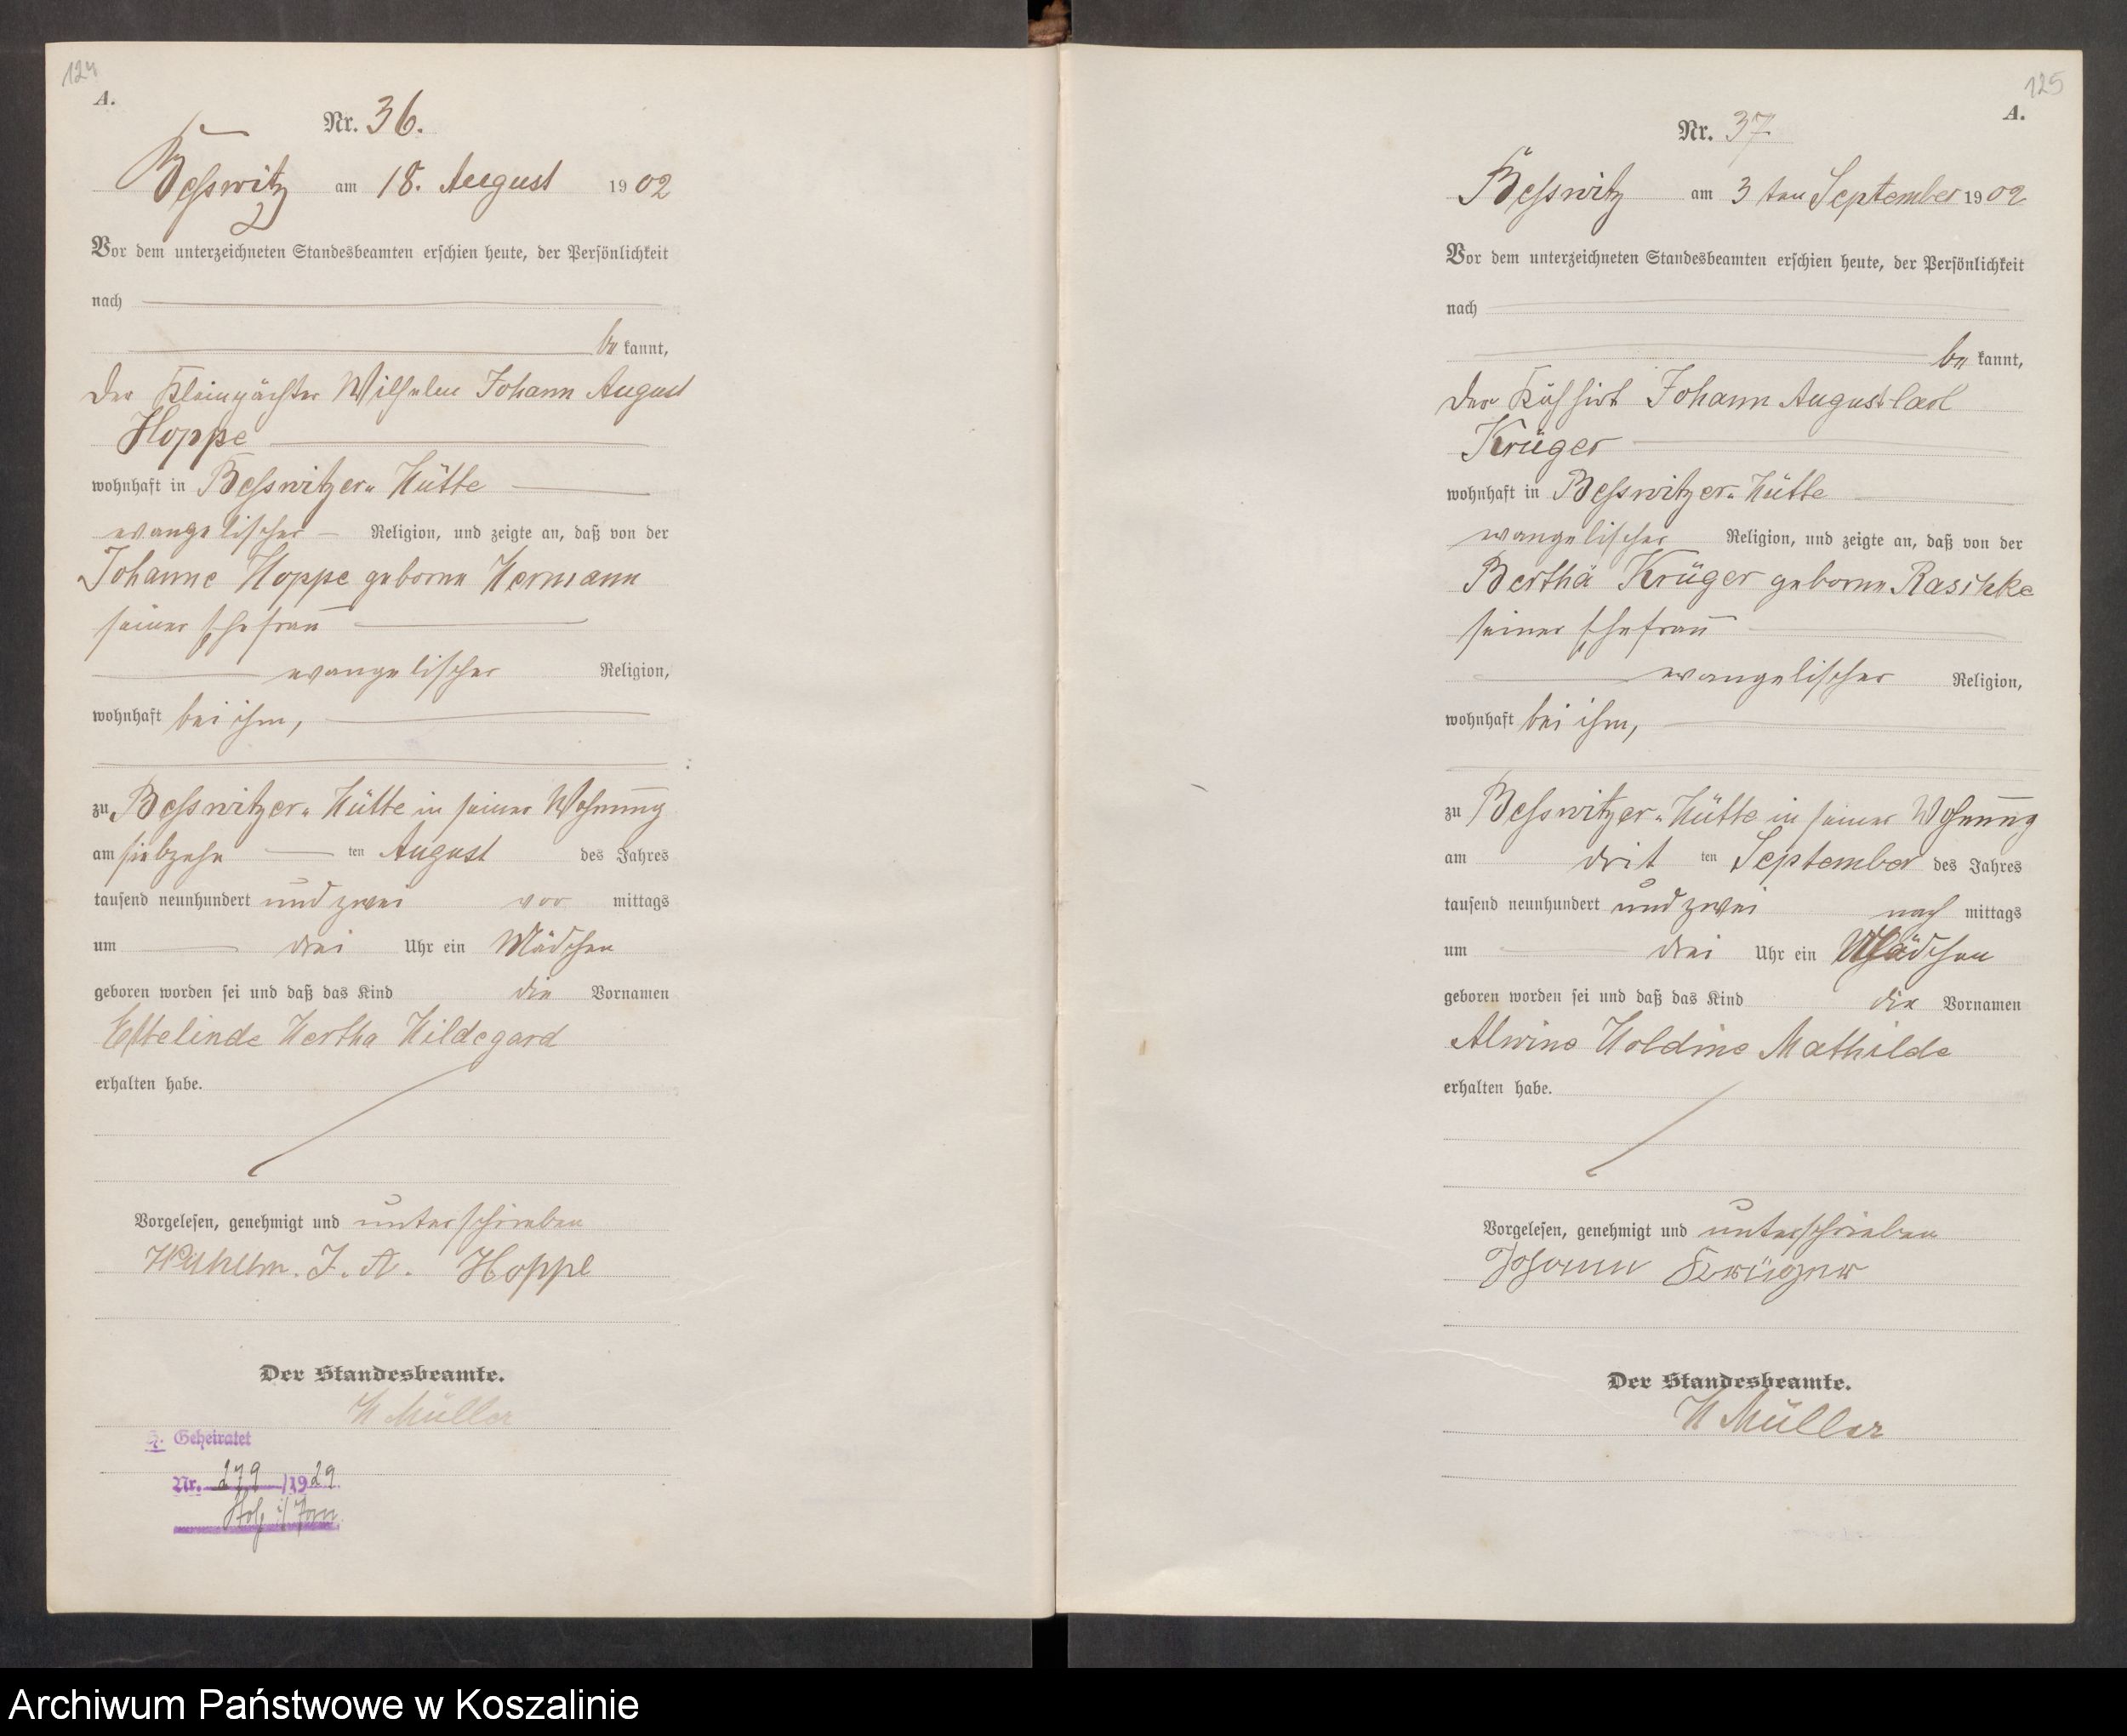 124
A.
Nr. 36.
Besswitz am 18. August 1902
Vor dem unterzeichneten Standesbeamten erschien heute, der Persönlichkeit
nach
be kannt,
der Kleinpächter Wilhelm Johann August
Hoppe
wohnhaft in Besswitzer-Hütte
evangelischer Religion, und zeigte an, daß von der
Johanne Hoppe geborne Hermann
seiner Ehefrau
evangelischer Religion,
wohnhaft bei ihm,
zu Besswitzer-Hütte in seiner Wohnung
am siebzehn ten August des Jahres
tausend neunhundert und zwei vor mittags
um drei Uhr ein Mädchen
geboren worden sei und daß das Kind die Vornamen
Hertha Hildegard
erhalten habe.
Vorgelesen, genehmigt und unterschrieben
Wilhelm. J. A. Hoppe
Der Standesbeamte.
H Müller
Geheiratet
Nr. 279/1929
125
A.
Nr. 37
Besswitz am 3ten September 1902
Vor dem unterzeichneten Standesbeamten erschien heute, der Persönlichkeit
nach
be kannt,
der Kuhhirt Johann August Carl
Krüger
wohnhaft in Besswitzer-Hütte
evangelischer Religion, und zeigte an, daß von der
Bertha Krüger geborne Raschke
seiner Ehefrau
evangelischer Religion,
wohnhaft bei ihm,
zu Besswitzer-Hütte in seiner Wohnung
am drit ten September des Jahres
tausend neunhundert und zwei nach mittags
um drei Uhr ein Mädchen
geboren worden sei und daß das Kind die Vornamen
Alwine Holdine Mathilde
erhalten habe.
Vorgelesen, genehmigt und unterschrieben
Johann Krüger
Der Standesbeamte.
H Müller
Archiwum Państwowe w Koszalinie